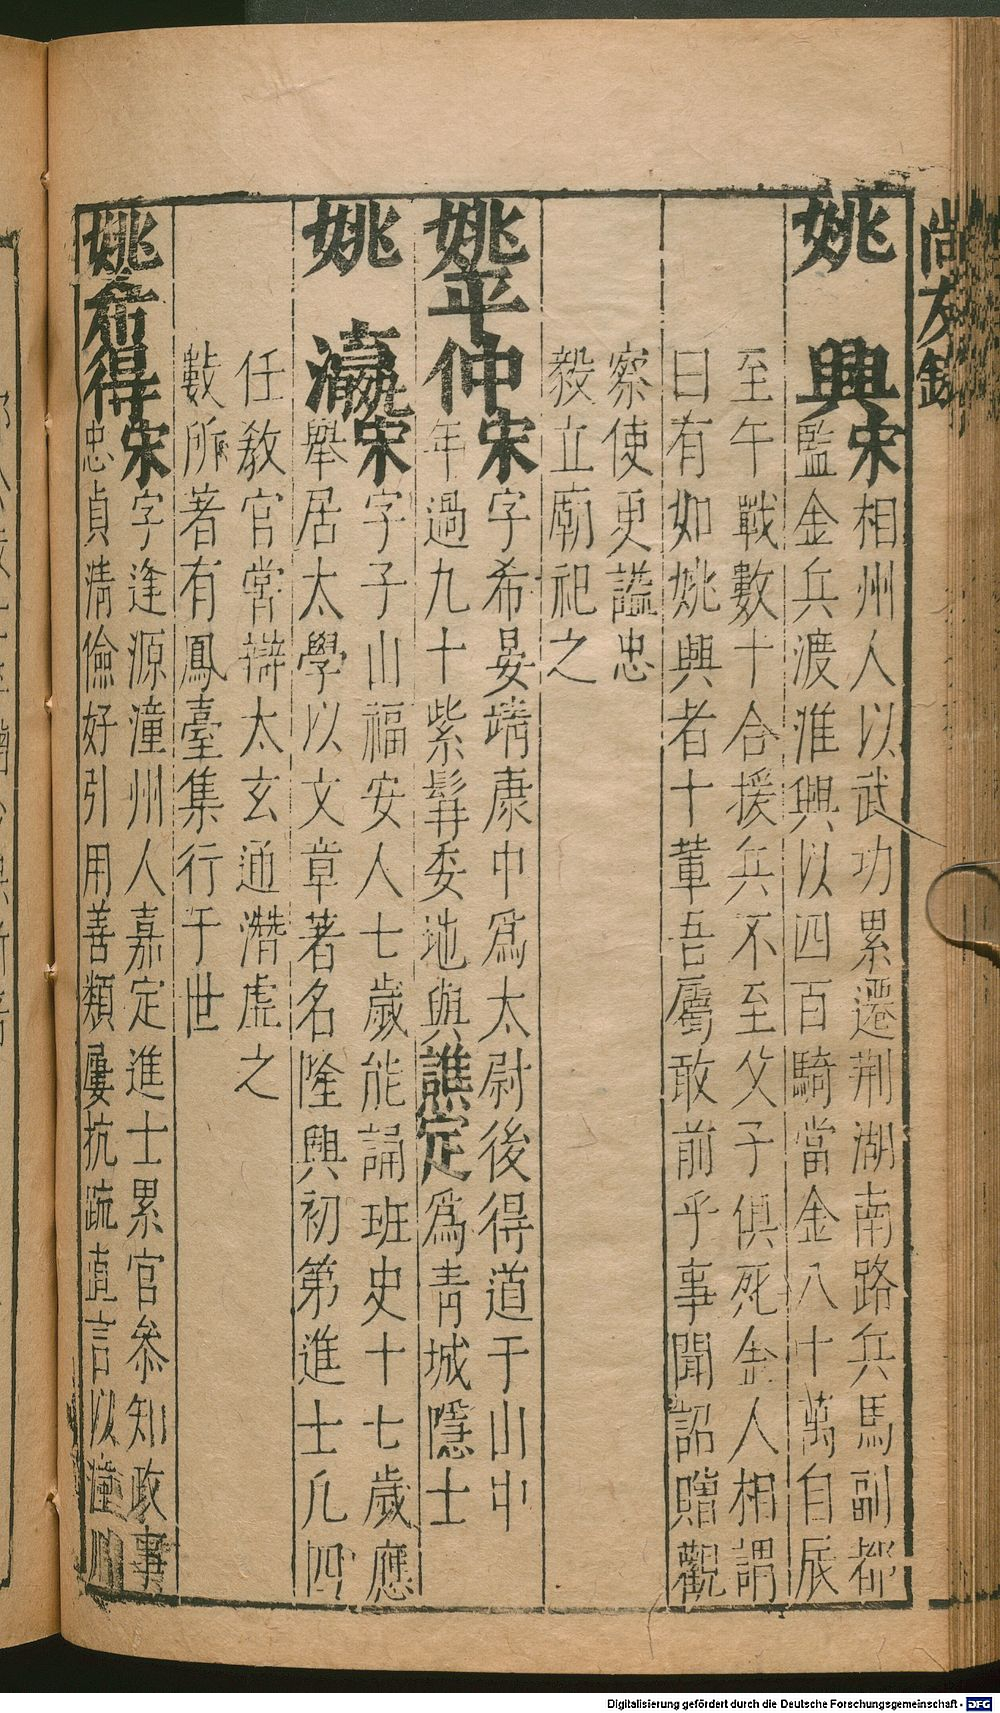 尚友錄
姚興宋相州人以武功累遷荆湖南路兵馬副都
監金兵渡淮興以四百騎當金八十萬自辰
至午戰數十合援兵不至父子俱死金人相謂
曰有如姚興者十輩吾屬敢前乎事聞詔贈觀
察使更謚忠
毅立廟祀之
姚平仲宋字希晏靖康中爲太尉後得道于山中
年過九十紫髯委地與譙定爲青城隱士
姚瀛宋字子山福安人七歲能誦班史十七歲應
舉居太學以文章著名隆興初第進士凡四
任教官嘗辯太玄通潛虛之
數所著有鳳臺集行于世
姚希得宋字逢源潼州人嘉定進士累官參知政事
忠貞清儉好引用善類屢抗疏直言以潼川
Digitalisierung gefördert durch die Deutsche Forschungsgemeinschaft - DFG